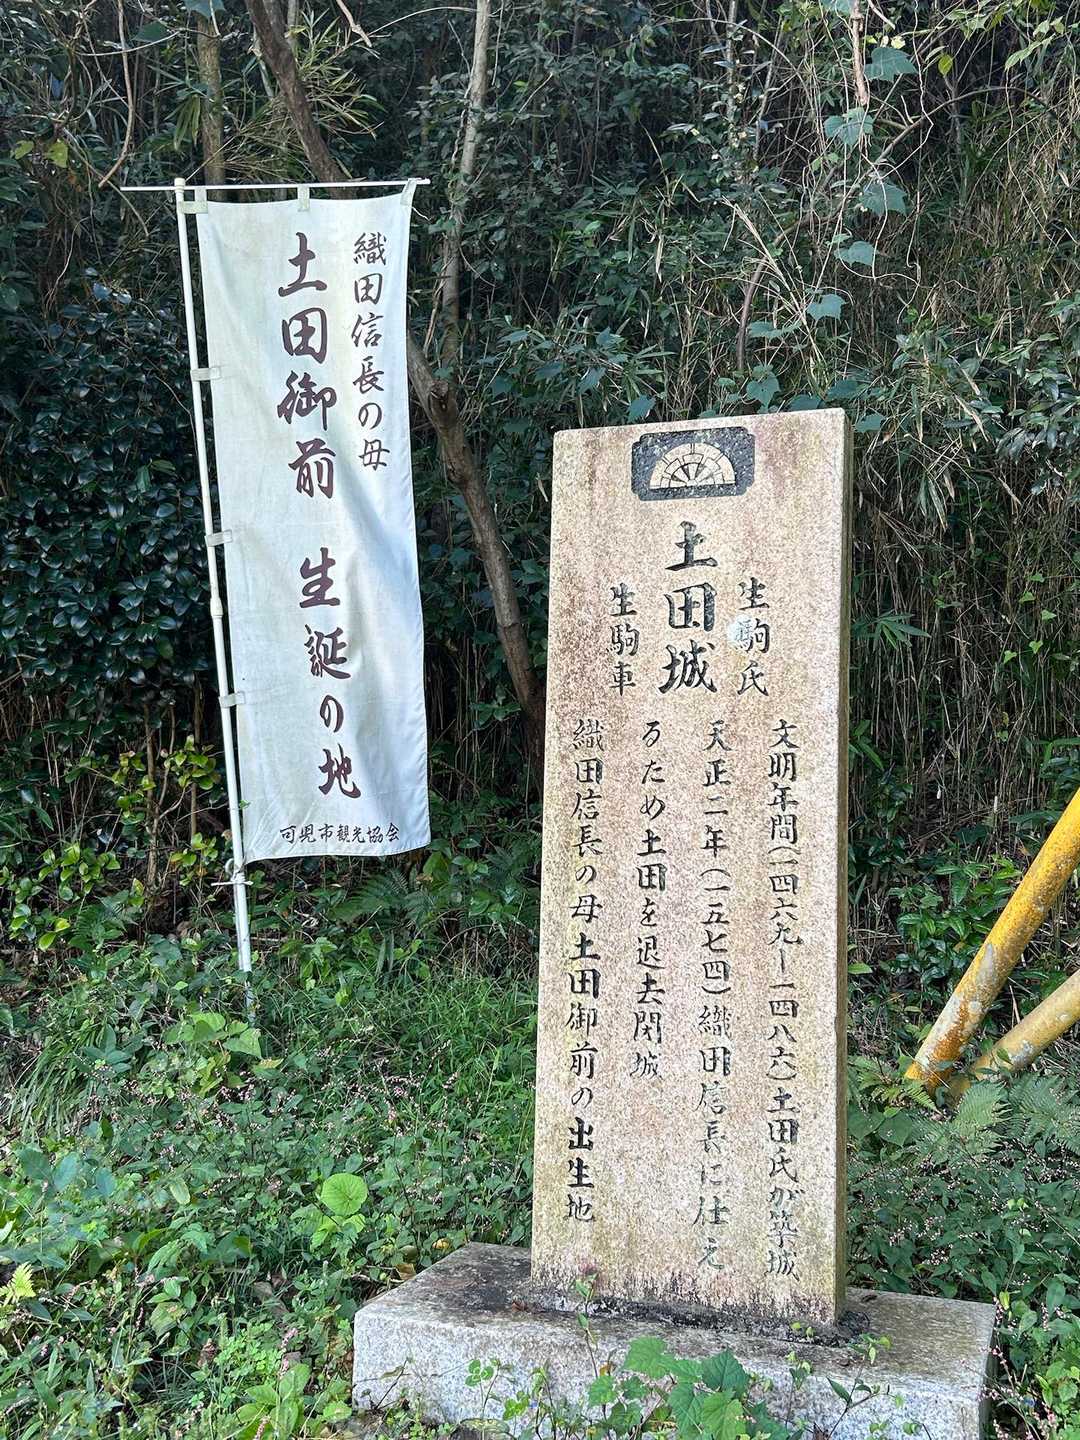 織田信長の母
土田御前 生誕の地
可児市観光協会
生駒氏
土田城
生駒車
文明年間(一四六九ー一四八六)土田氏が築城
天正二年(一五七四)織田信長に仕え
るため土田を退去閉城
織田信長の母土田御前の出生地